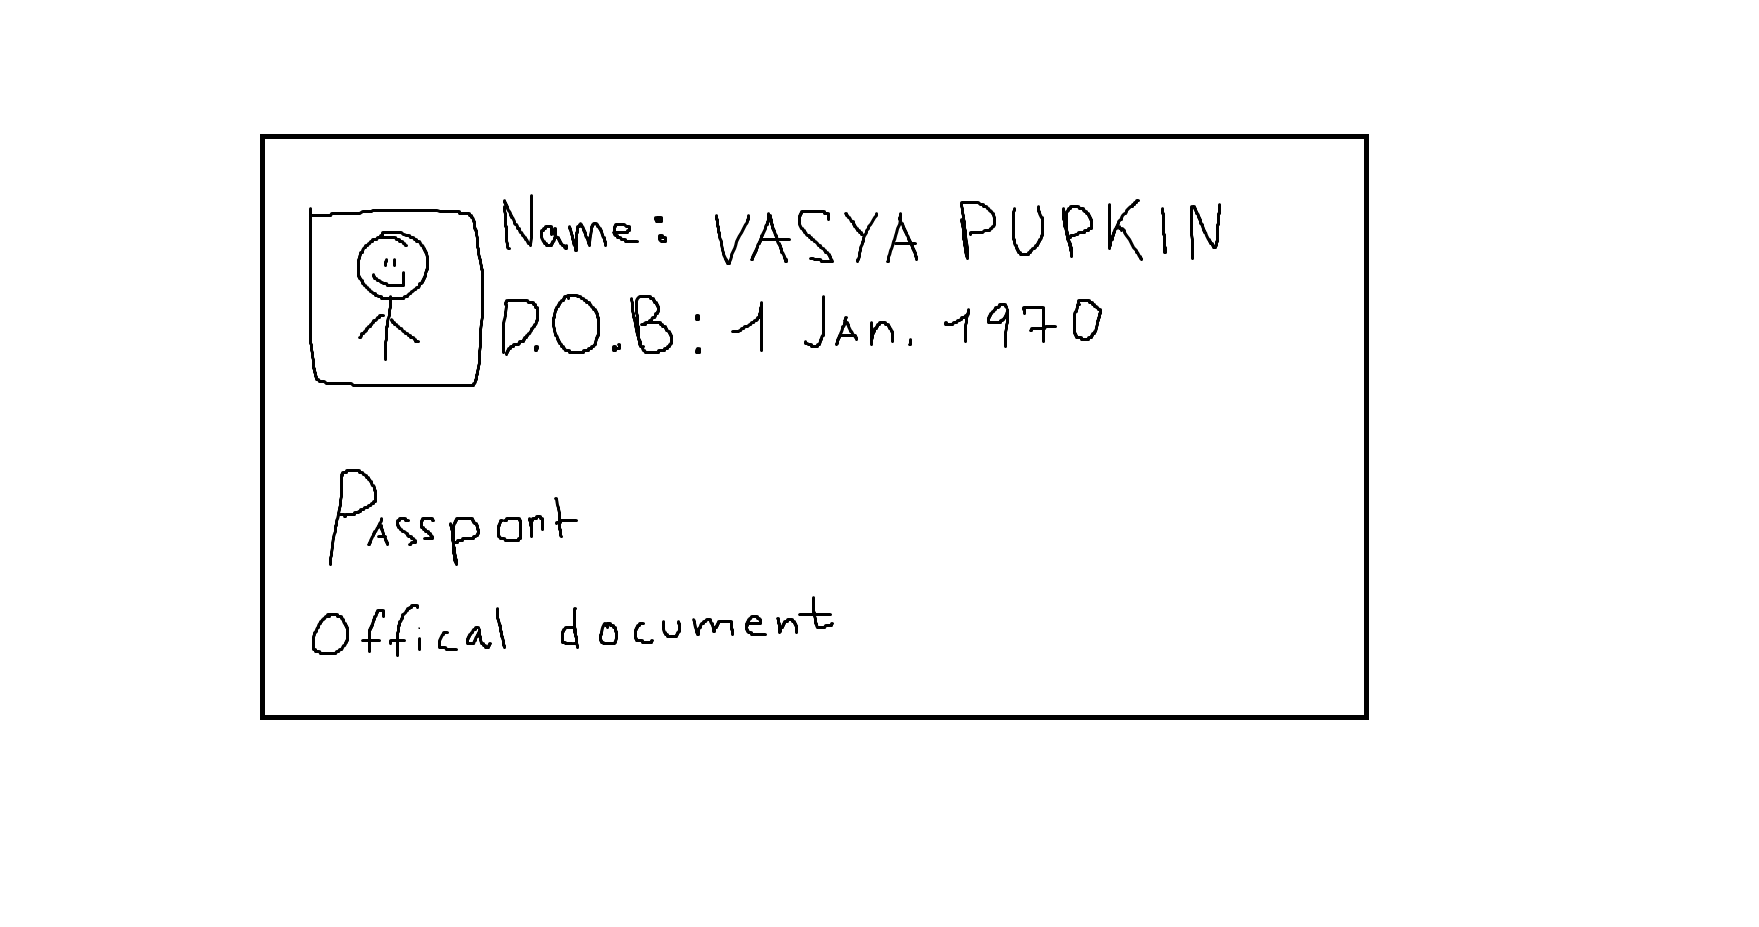 Name: VASYA PUPKIN
D.O.B: 1 Jan. 1970
Passport
Offical document